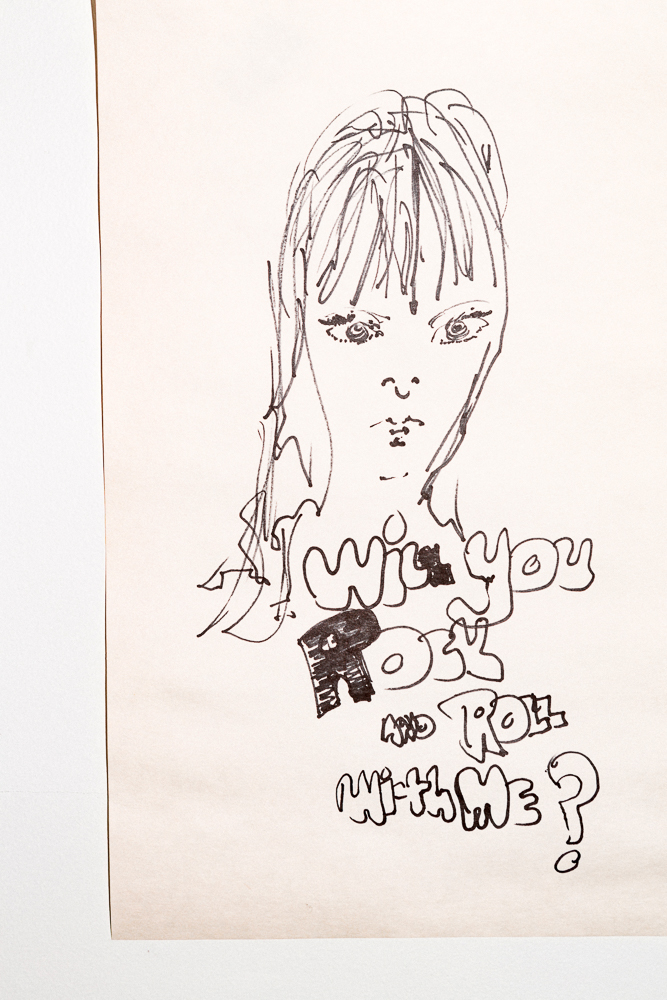 Will you
Rock
AND ROLL
With ME?